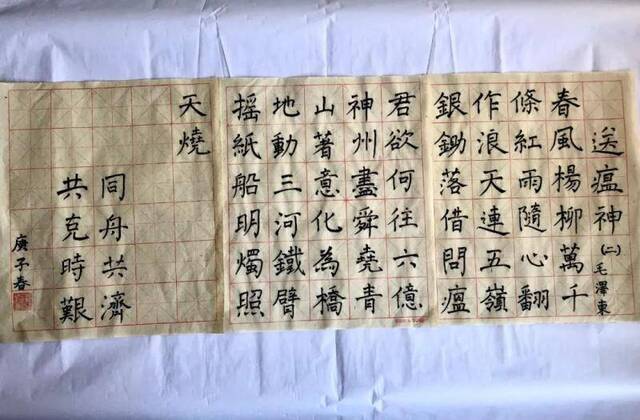 送瘟神(二)毛澤東
春風楊柳萬千
條紅雨隨心翻
作浪天連五嶺
銀鋤落借問瘟
君欲何往六億
神州盡舜堯青
山著意化為橋
地動三河鐵臂
摇紙船明燭照
天燒
同舟共濟
共克時艱
庚子春